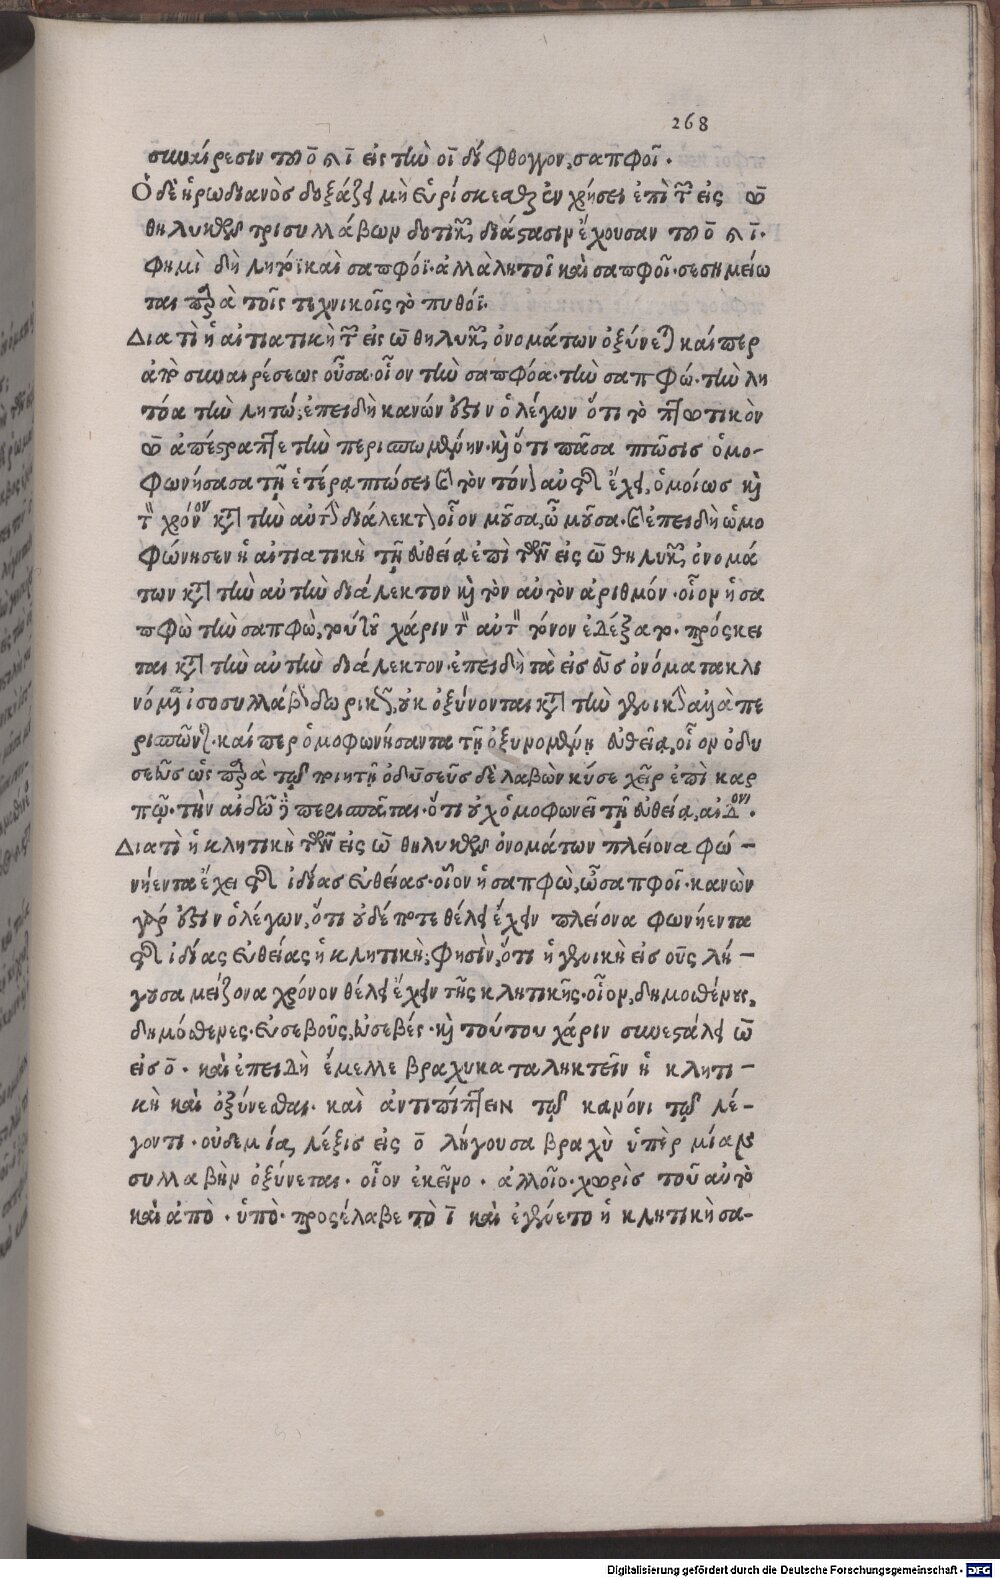 268
συναίρεσιν τοῦ ο̄ καὶ ῑ εἰς τὴν οῖ δίφθογγον, σαπφοῖ.
Ὁ δὲ ἡρωδιανὸς δοξάζει μὴ εὑρίσκεσθαι ἐν χρήσει ἐπὶ τῶν εἰς ω̄
θηλυκῶν τρισυλλάβων δοτικὴν διάστασιν ἔχουσαν τοῦ ο̄ καὶ ῑ.
φημὶ δὴ λητόϊ καὶ σαπφόϊ. ἀλλὰ λητοῖ καὶ σαπφοῖ. σεσημείω
ται παρὰ τοῖς τεχνικοῖς τὸ πυθόϊ.
Διατί ἡ αἰτιατικὴ τῶν εἰς ω̄ θηλυκῶν ὀνομάτων ὀξύνεται καίπερ
ἀπὸ συναιρέσεως οὖσα. οἷον τὴν σαπφόα. τὴν σαπφώ. τὴν λη
τόα τὴν λητώ; ἐπειδὴ κανών ἐστιν ὁ λέγων ὅτι τὸ πτωτικὸν
ω̄ ἀπέστραπται τὴν περισπωμένην. καὶ ὅτι πᾶσα πτῶσις ὁμο-
φωνήσασα τῇ ἑτέρᾳ πτώσει καὶ τὸν τόνον αὐτῆς ἔχει, ὁμοίως καὶ
τὸν χρόνον κατὰ τὴν αὐτὴν διάλεκτον οἷον μοῦσα, ὦ μοῦσα. καὶ ἐπειδὴ ὡμο
φώνησεν ἡ αἰτιατικὴ τῇ εὐθείᾳ ἐπὶ τῶν εἰς ω̄ θηλυκῶν ὀνομά
των κατὰ τὴν αὐτὴν διάλεκτον καὶ τὸν αὐτὸν ἀριθμόν. οἷον ἡ σα
πφὼ τὴν σαπφὼ, τούτου χάριν τὸν αὐτὸν τόνον ἐδέξατο. πρόσκει
ται κατὰ τὴν αὐτὴν διάλεκτον. ἐπειδὴ τὰ εἰς εὺς ὀνόματα κλι
νόμενα ἰσοσυλλάβως δωρικῶς, οὐκ ὀξύνονται κατὰ τὴν γενικὴν ἀλλὰ πε
ρισπῶνται. καίπερ ὁμοφωνήσαντα τῇ ὀξυνομένῃ εὐθείᾳ, οἷον ὀδυ
σεῦς ὡς παρὰ τῷ ποιητῇ ὀδυσεῦς δὲ λαβὼν κύσε χεῖρ ἐπὶ καρ
πῷ. τὴν αἰδῶ δὲ περισπᾶται. ὅτι οὐχ ὁμοφωνεῖ τῇ εὐθείᾳ, αἰδ.
Διατί ἡ κλητικὴ τῶν εἰς ω̄ θηλυκῶν ὀνομάτων πλείονα φω-
νήεντα ἔχει τῆς ἰδίας εὐθείας. οἷον ἡ σαπφὼ, ὦ σαπφοῖ. κανὼν
γάρ ἐστιν ὁ λέγων, ὅτι οὐδέποτε θέλει ἔχειν πλείονα φωνήεντα
τῆς ἰδίας εὐθείας ἡ κλητική; φησὶν, ὅτι ἡ γενικὴ εἰς οῦς λή-
γουσα μείζονα χρόνον θέλει ἔχειν τῆς κλητικῆς. οἷον, δημοσθένους,
δημόσθενες. εὐσεβοῦς, εὐσεβές. καὶ τούτου χάριν συνεστάλη ω̄
εἰς ο̄. καὶ ἐπειδὴ ἔμελλε βραχυκαταληκτεῖν ἡ κλητι-
κὴ καὶ ὀξύνεσθαι. καὶ ἀντιπίπτειν τῷ κανόνι τῷ λέ-
γοντι. οὐδεμία λέξις εἰς ο̄ λήγουσα βραχὺ ὑπὲρ μίαν
συλλαβὴν ὀξύνεται. οἷον ἐκεῖνο. ἄλλοῖο. χωρὶς τοῦ αὐτὸ
καὶ ἀπὸ. ὑπὸ. προσέλαβε τὸ ῑ καὶ ἐγένετο ἡ κλητικὴ σα-
Digitalisierung gefördert durch die Deutsche Forschungsgemeinschaft - DFG